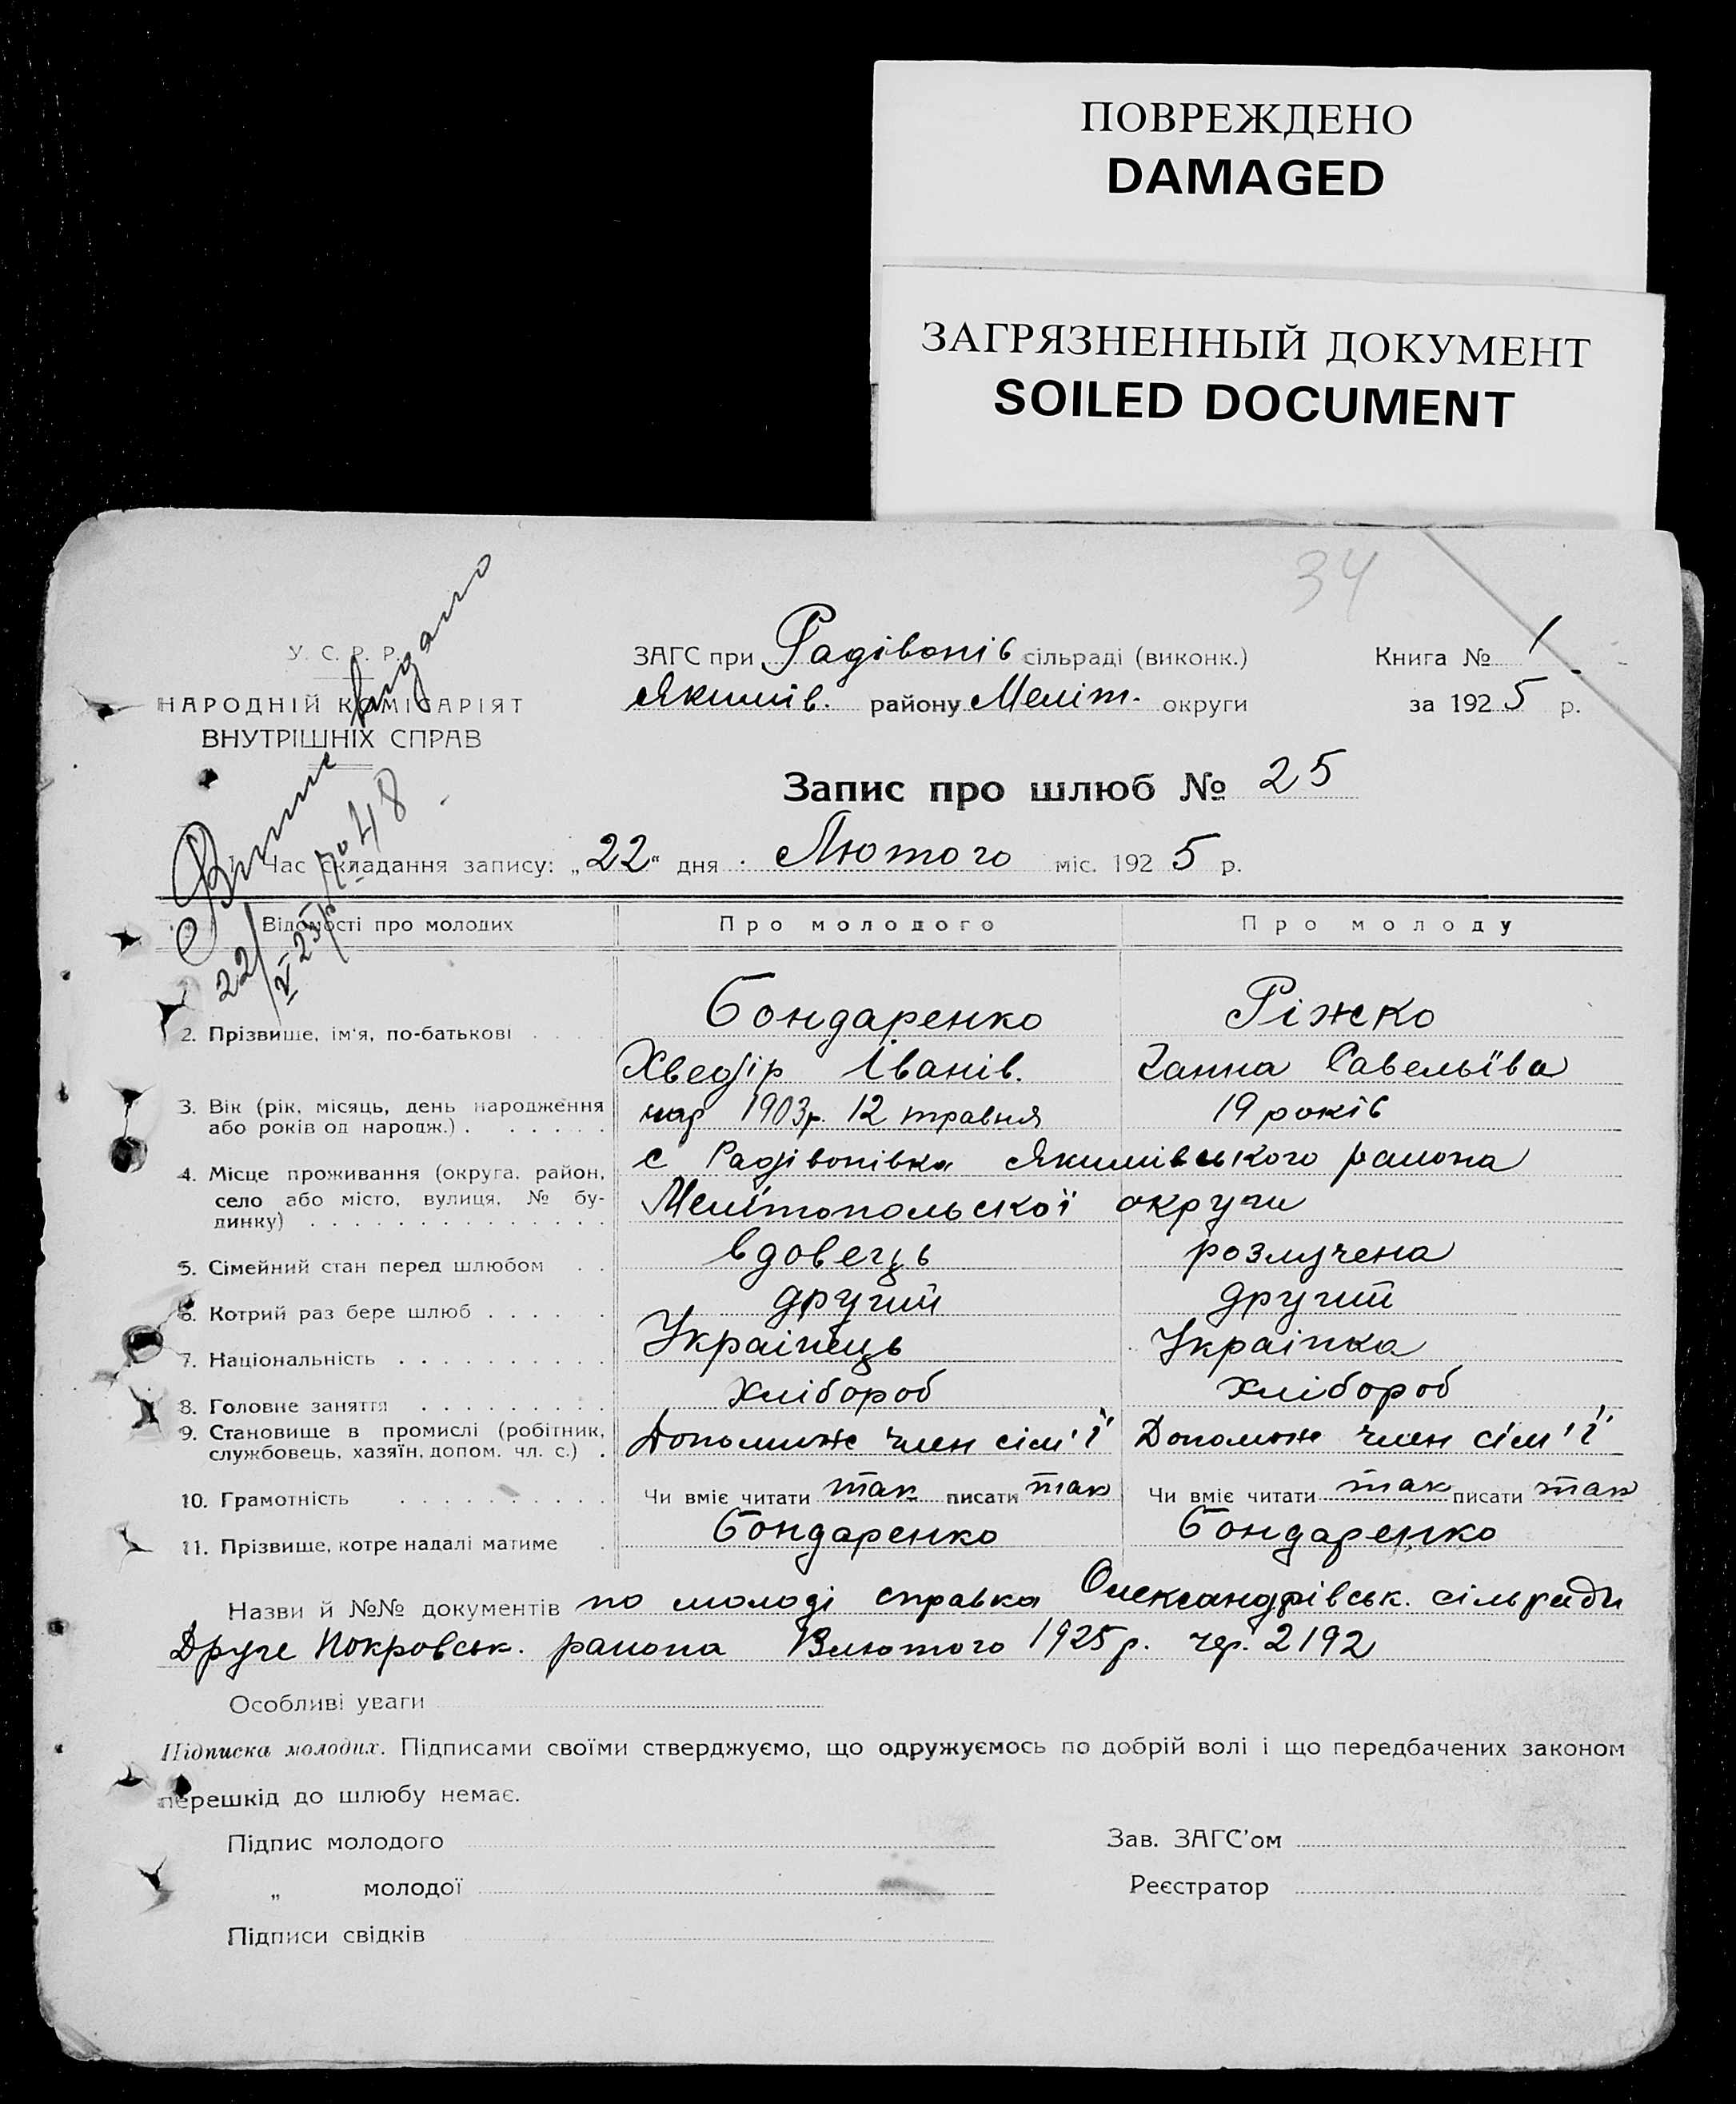 ПОВРЕЖДЕНО
DAMAGED
ЗАГРЯЗНЕННЫЙ ДОКУМЕНТ
SOILED DOCUMENT
34
У. С. Р. Р.
НАРОДНІЙ КОМІСАРІЯТ
ВНУТРІШНІХ СПРАВ
Випис видано
22/V 25р №48
ЗАГС при Радівонів сільраді (виконк.)
Якимів. району Меліт. округи
Книга № 1
за 1925 р.
Запис про шлюб № 25
Час складання запису: „22“ дня Лютого міс. 1925 р.
Відомості про молодих Про молодого Про молоду
2. Прізвище, ім'я, по-батькові Бондаренко Ріжко
Хведір Іванів. Ганна Савельїва
3. Вік (рік, місяць, день народження або років од народж.) нар 1903р. 12 травня 19 років
4. Місце проживання (округа, район, село або місто, вулиця, № будинку) с Радівонівка Якимівського района
Мелітопольскої округи
5. Сімейний стан перед шлюбом вдовець розлучена
6. Котрий раз бере шлюб другий другий
7. Національність Українець Українка
8. Головне заняття хлібороб хлібороб
9. Становище в промислі (робітник, службовець, хазяїн, допом. чл. с.) Допоміж член сім'ї Допомож член сім'ї
10. Грамотність Чи вміє читати так писати так Чи вміє читати так писати так
11. Прізвище, котре надалі матиме Бондаренко Бондаренко
Назви й №№ документів по молоді справка Олександрівськ. сільради
Друге Покровськ. района 13 лютого 1925р. чер. 2192
Особливі уваги
Підписка молодих. Підписами своїми стверджуємо, що одружуємось по добрій волі і що передбачених законом
перешкід до шлюбу немає.
Підпис молодого Зав. ЗАГС'ом
„ молодої Реєстратор
Підписи свідків